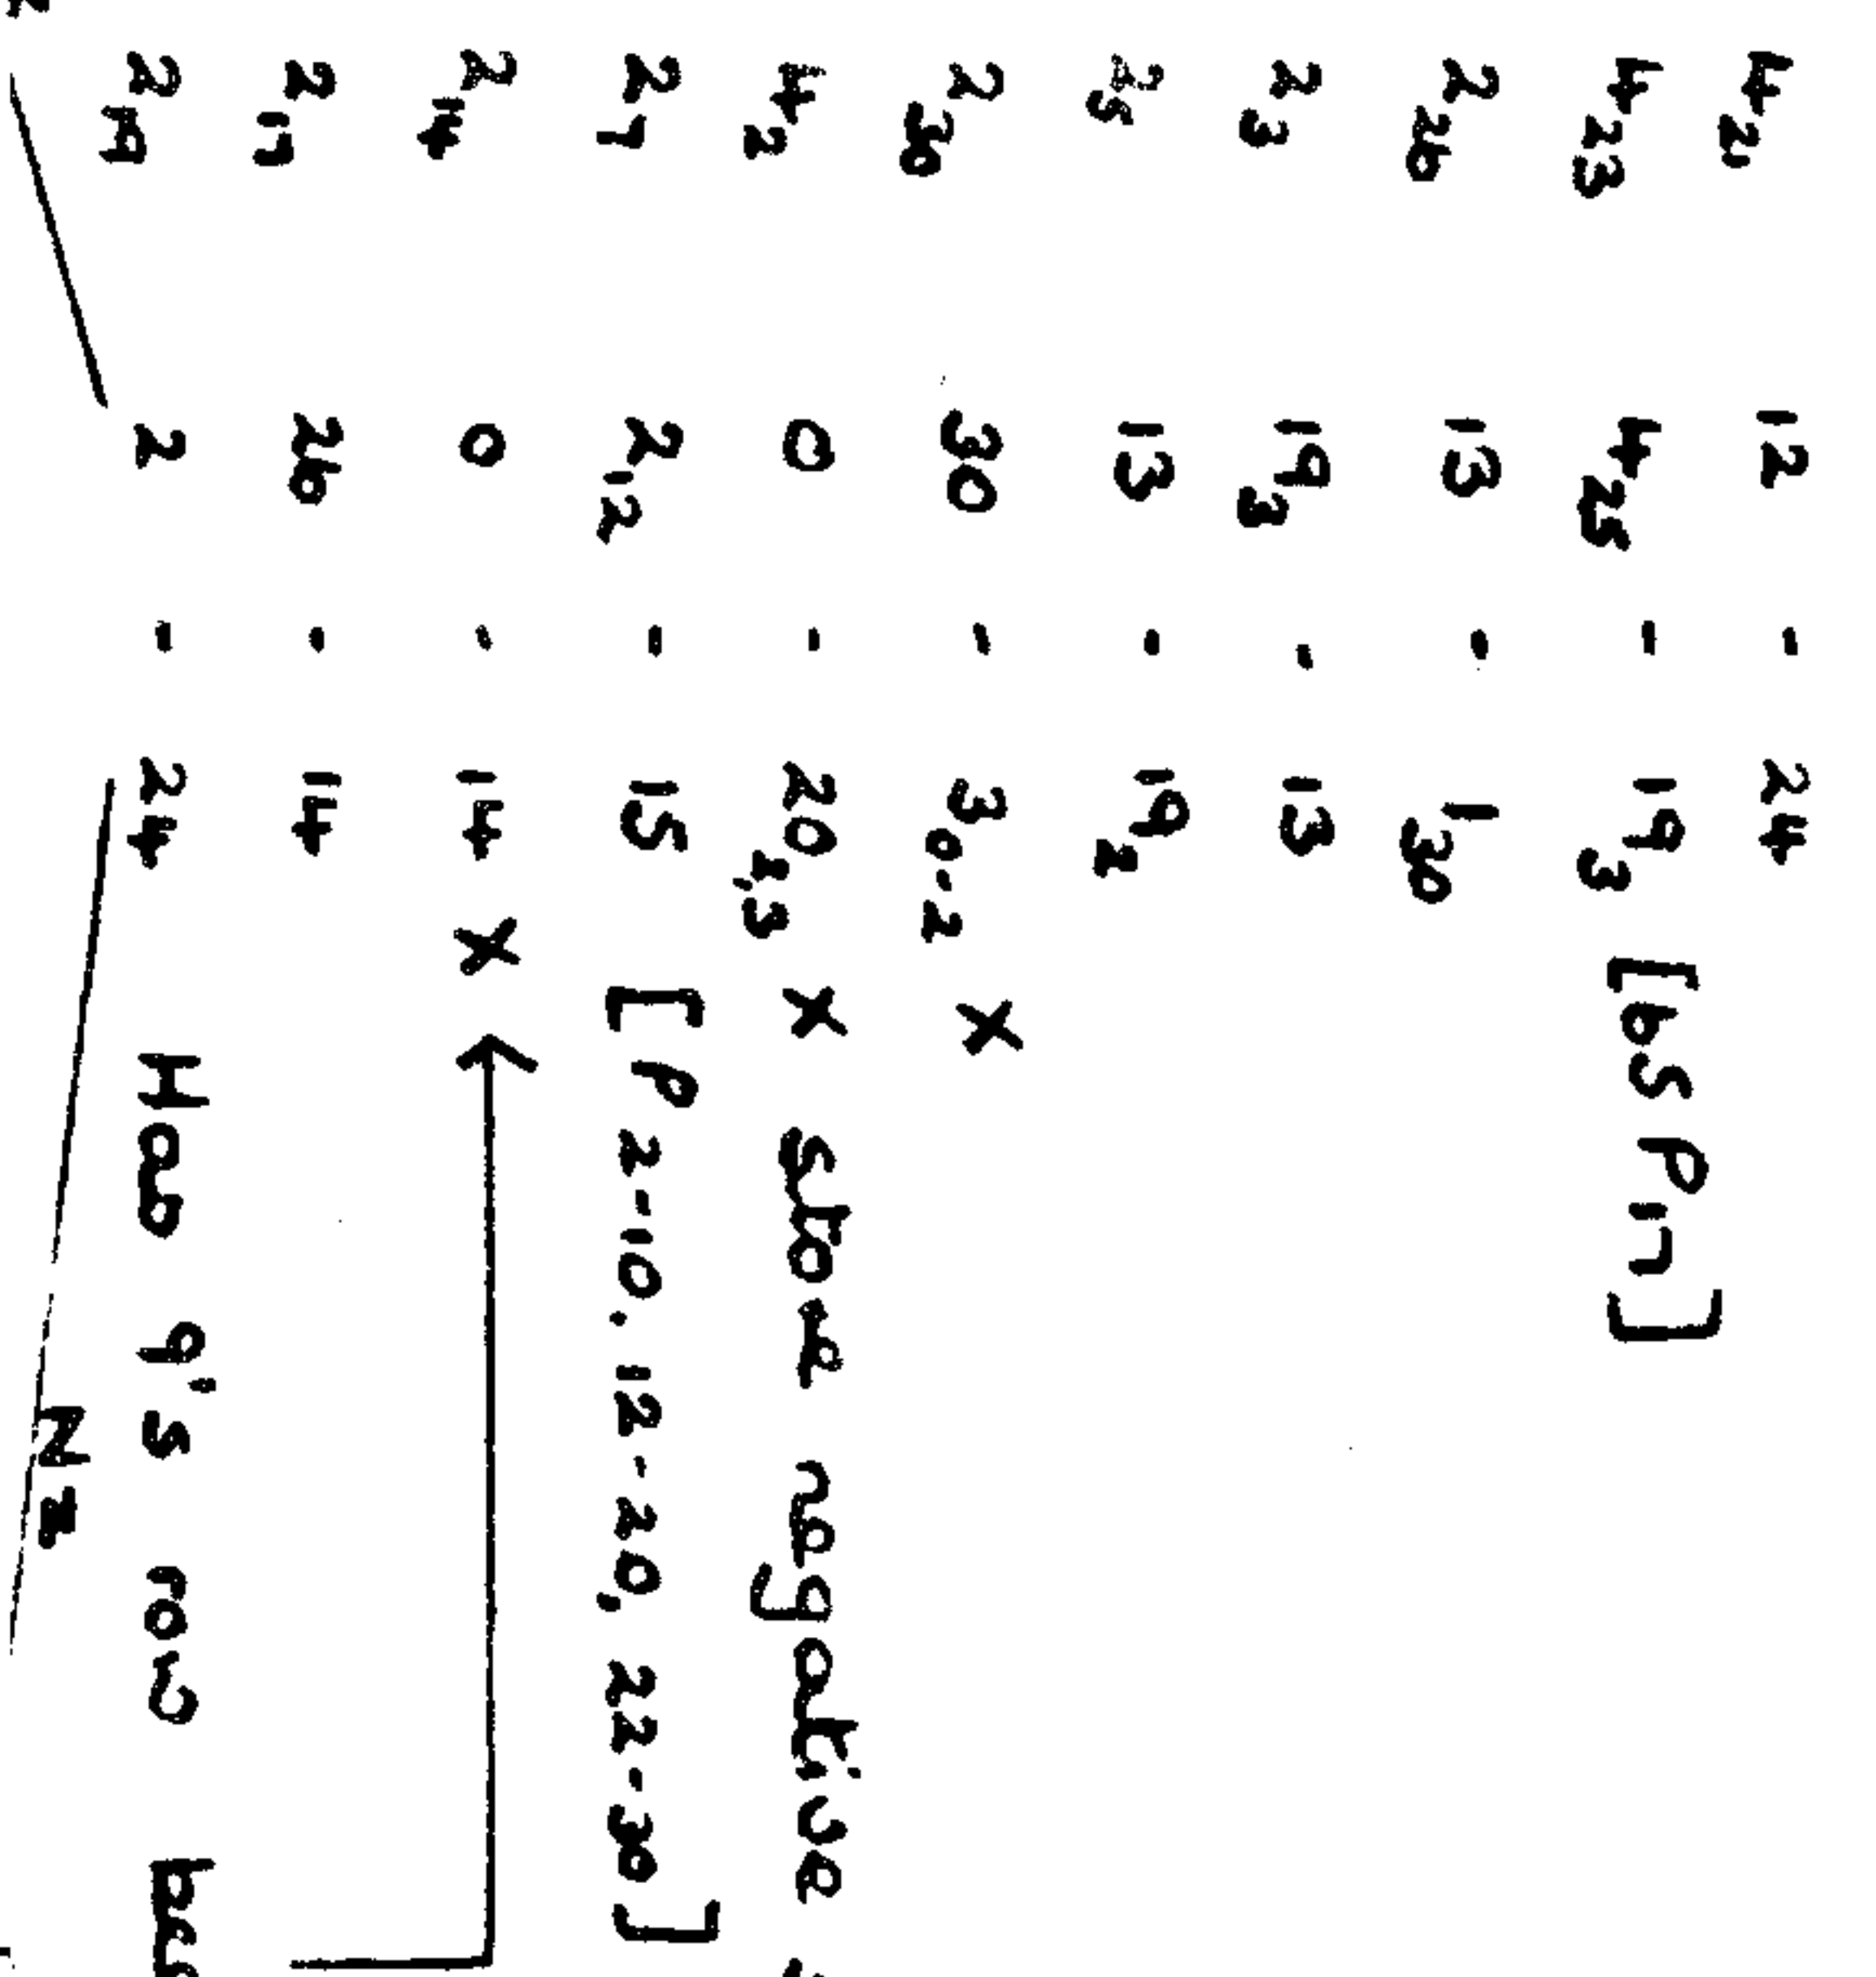 4₂ 12 - 24
4₂₃ 4₂₅ - 19₃ [bs Pin]
2₂₆ 13 - 1₃₀
2₃ 19₃ - 13
2₅ 13 - 19₂
2₃₀ 30 - 3₀₋₂ ×
4₂ 0 - 20₁,₃ × store negative
2₇ 2₁,₂ - 15 [P 2-10. 12-20, 22-30]
2₁₄ 0 - 14 ×
2 26 - 14
2₁₉ 2 - 24 Has 9's row